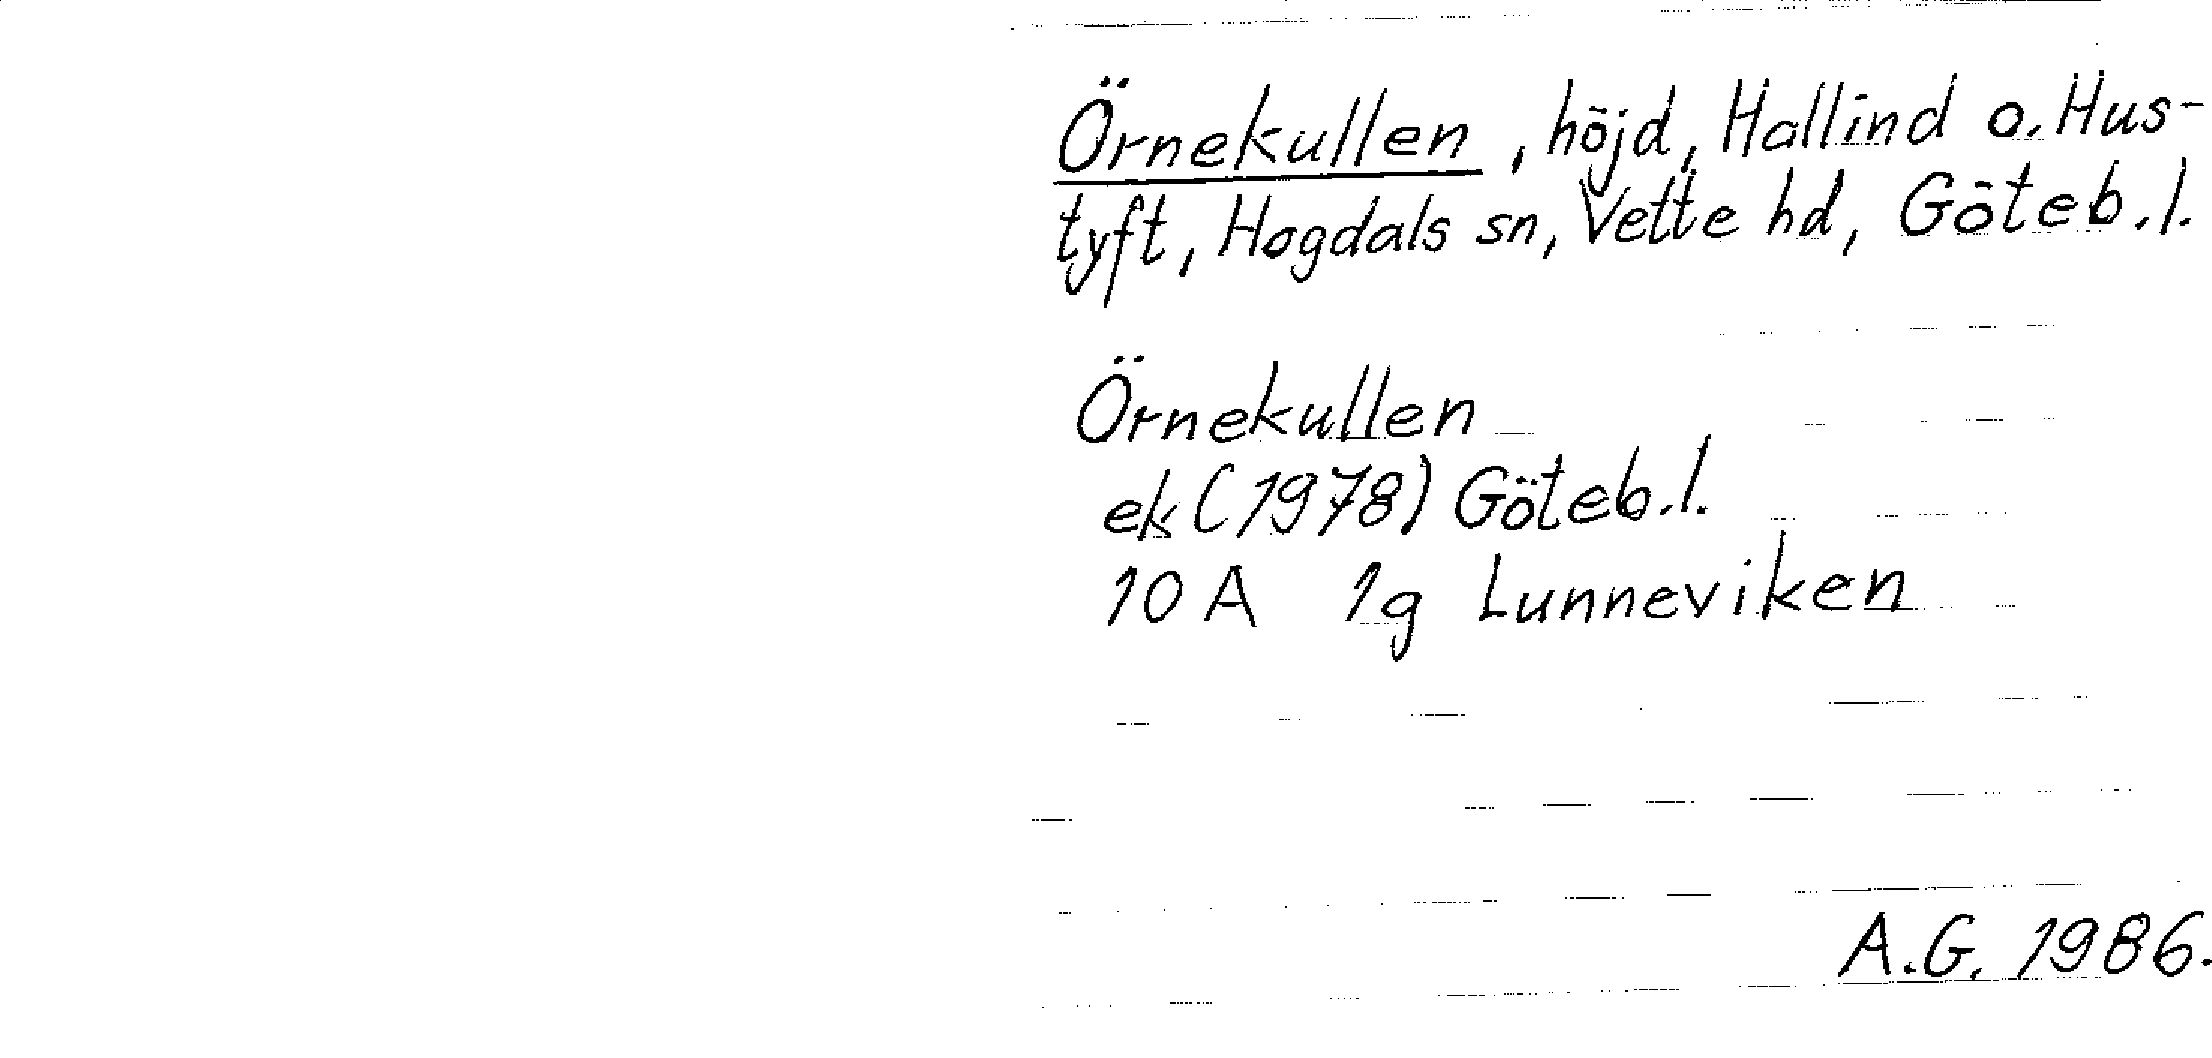 Örnekullen, höjd, Hallind o. Hus-
tyft, Hogdals sn, Vette hd, Göteb. l.
Örnekullen
ek (1978) Göteb. l.
10 A 1g Lunneviken
A.G. 1986.